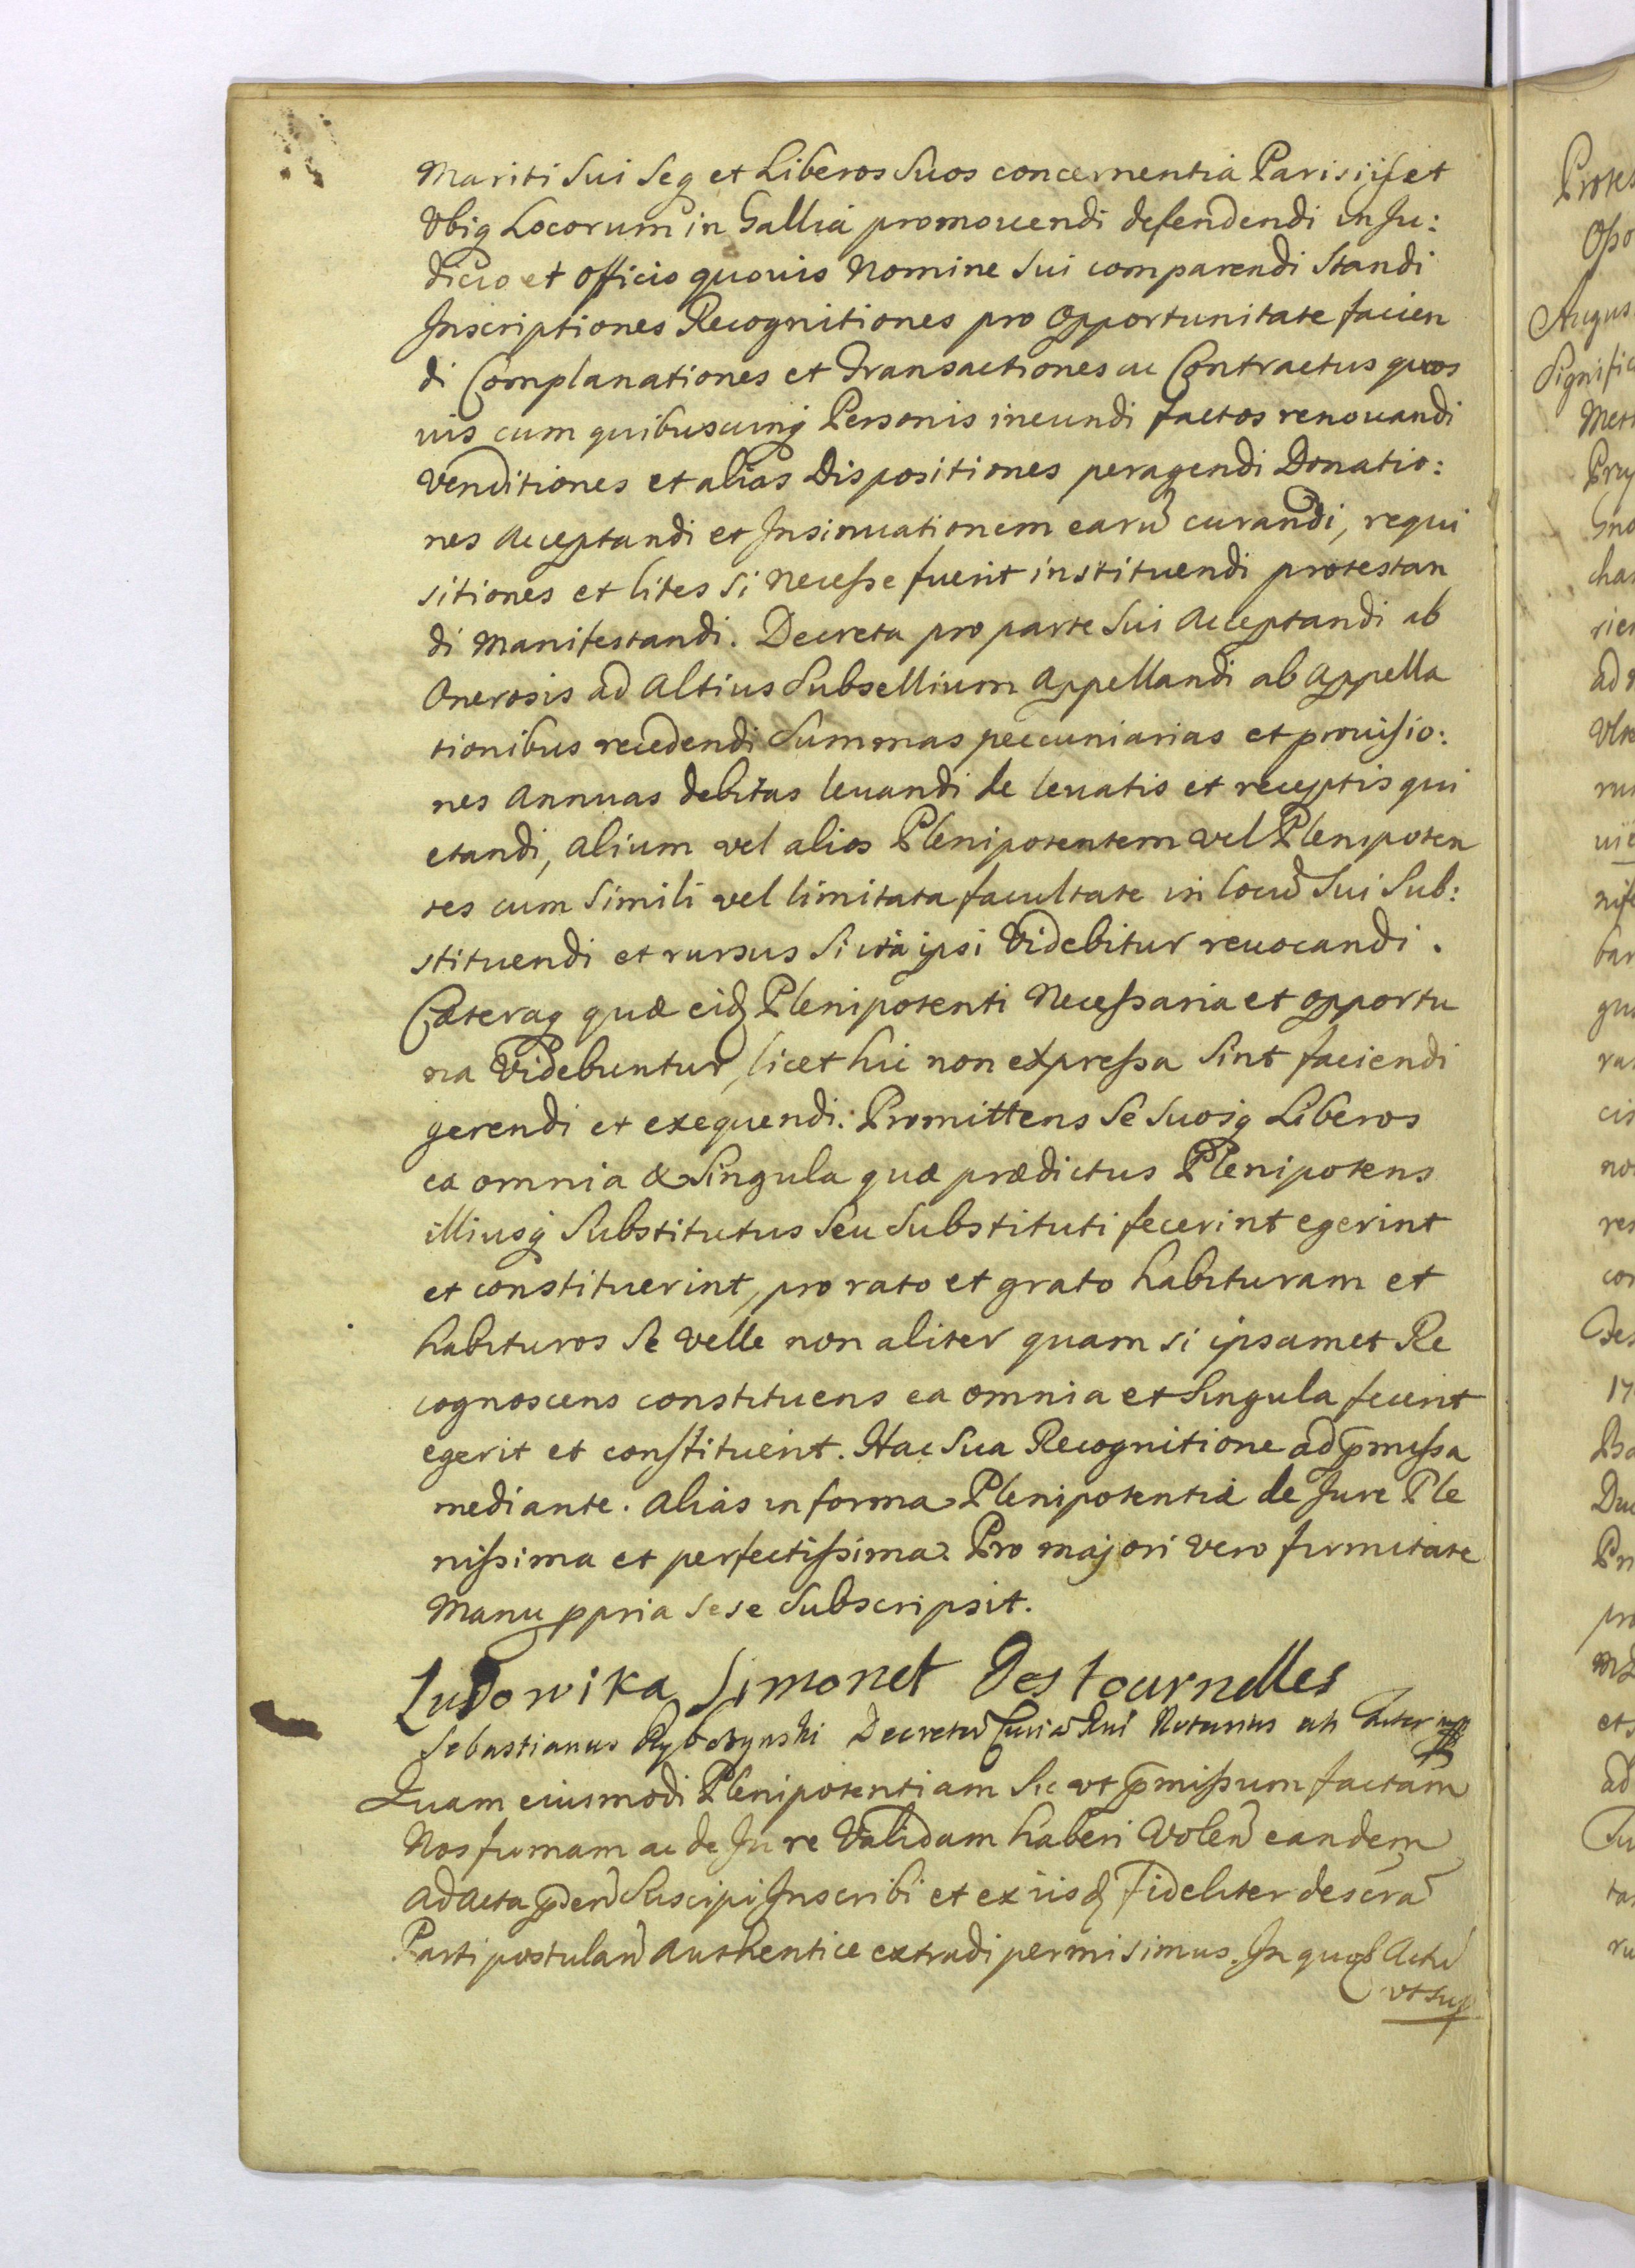 Mariti Sui Seq et Liberos Suos concernentia Parisijs et
Vbiq Locorum in Gallia promouendi defendendi in Ju:
dicio et Officio quouis Nomine Sui comparendi Standi
Inscriptiones Recognitiones pro Opportunitate facien
di Complanationes et Transactiones ac Contractus quos
uis cum quibuscunq Personis ineundi factos renouandi
Venditiones et alias Dispositiones peragendi Donatio:
nes Acceptandi et Insinuationem earū curandi, requi
sitiones et lites Si Necesse fuerit instituendi protestan
di Manifestandi. Decreta pro parte Sui Acceptandi ab
Onerosis ad Altius Subsellium Appellandi ab Appella
tionibus recedendi Summas peccuniarias et prouisio:
nes Annuas debitas leuandi de leuatis et receptis qui
etandi, Alium vel alios Plenipotentem vel Plenipoten
tes cum Simili vel limitata facultate in locū Sui Sub:
stituendi et rursus Si ita ipsi Videbitur reuocandi.
Cæteraq quæ eid Plenipotenti Necessaria et opportu
na Videbuntur, licet hic non expressa Sint faciendi
gerendi et exequendi. Promittens Se Suosq Liberos
ea omnia & Singula quæ prædictus Plenipotens
illiusq Substitutus Seu Substituti fecerint egerint
et constituerint, pro rato et grato habituram et
habituros Se Velle non aliter quam si ipsamet Re
cognoscens constituens ea omnia et Singula fecerit
egerit et constituerit. Hac Sua Recognitione ad p̄missa
mediante. Alias in forma Plenipotentiæ de Jure Ple
nissima et perfectissima. Pro majori vero firmitate
Manu ppria Sese Subscripsit.
Ludowika Simonet Destournelles
Sebastianus Rybczynski Decretor Curiæ Notarius
Quam eiusmodi Plenipotentiam Sic vt p̄missum factam
Nos firmam ac de Jure Validam haberi Volen̄ eandem
ad Acta p̄den̄ Suscipi Inscribi et ex iisd Fideliter descrā
Parti postulan̄ Authentice extradi permisimus. In quor Actū
vt sup